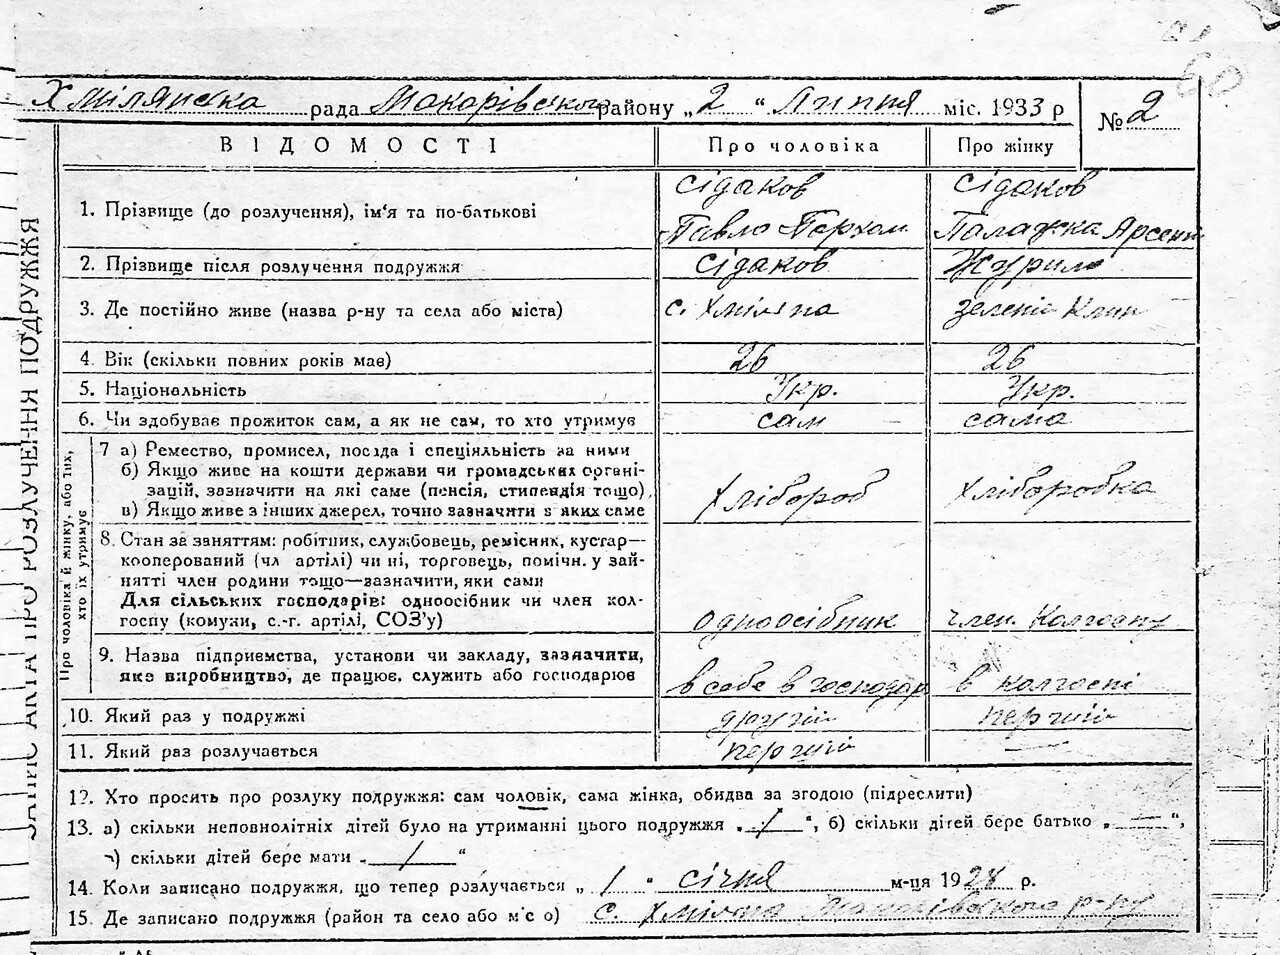 60
Хмілянська рада Макарівського району „2 “ Липня міс. 1933 р № 2
ВІДОМОСТІ Про чоловіка Про жінку
Сідаков Сідаков
1. Прізвище (до розлучення), ім‘я та по-батькові
Павло Пархом Палажка Арсент
2. Прізвище після розлучення подружжя Сідаков Журило
3. Де постійно живе (назва р-ну та села або міста) с. Хміляна зелений Клин
4. Вік (скільки повних років має) 26 26
5. Національність Укр. Укр.
6. Чи здобуває прожиток сам, а як не сам, то хто утримує сам сама
7 а) Ремество, промисел, посада і спеціяльність за ними
б) Якщо живе на кошти держави чи громадських органі-
зацій, зазначити на які саме (пенсія, стипендія тощо) Хлібороб Хліборобка
в) Якщо живе з інших джерел, точно зазначити з яких саме
8. Стан за заняттям: робітник, службовець, ремісник, кустар—
кооперований (чл артілі) чи ні, торговець, помічн. у зай-
нятті член родини тощо—зазначити, яки сами
Для сільських господарів: одноосібник чи член кол-
госпу (комуни, с.-г. артілі, СОЗ‘у) одноосібник член. Колгоспу
9. Назва підприємства, установи чи закладу, зазначити,
яке виробництво, де працює, служить або господарює в себе в господар в колгоспі
10. Який раз у подружжі другий перший
11. Який раз розлучається перший —
Про чоловіка й жінку, або тих,
хто їх утримує
ЗАПИС АКТА ПРО РОЗЛУЧЕННЯ ПОДРУЖЖЯ
12. Хто просить про розлуку подружжя: сам чоловік, сама жінка, обидва за згодою (підреслити)
13. а) скільки неповнолітніх дітей було на утриманні цього подружжя „ / “, б) скільки дітей бере батько „ — “,
в) скільки дітей бере мати „ / “
14. Коли записано подружжя, що тепер розлучається „ 1 “ січня м-ця 1928 р.
15. Де записано подружжя (район та село або м‘с о) с. Хміляна Макарівського р-ну